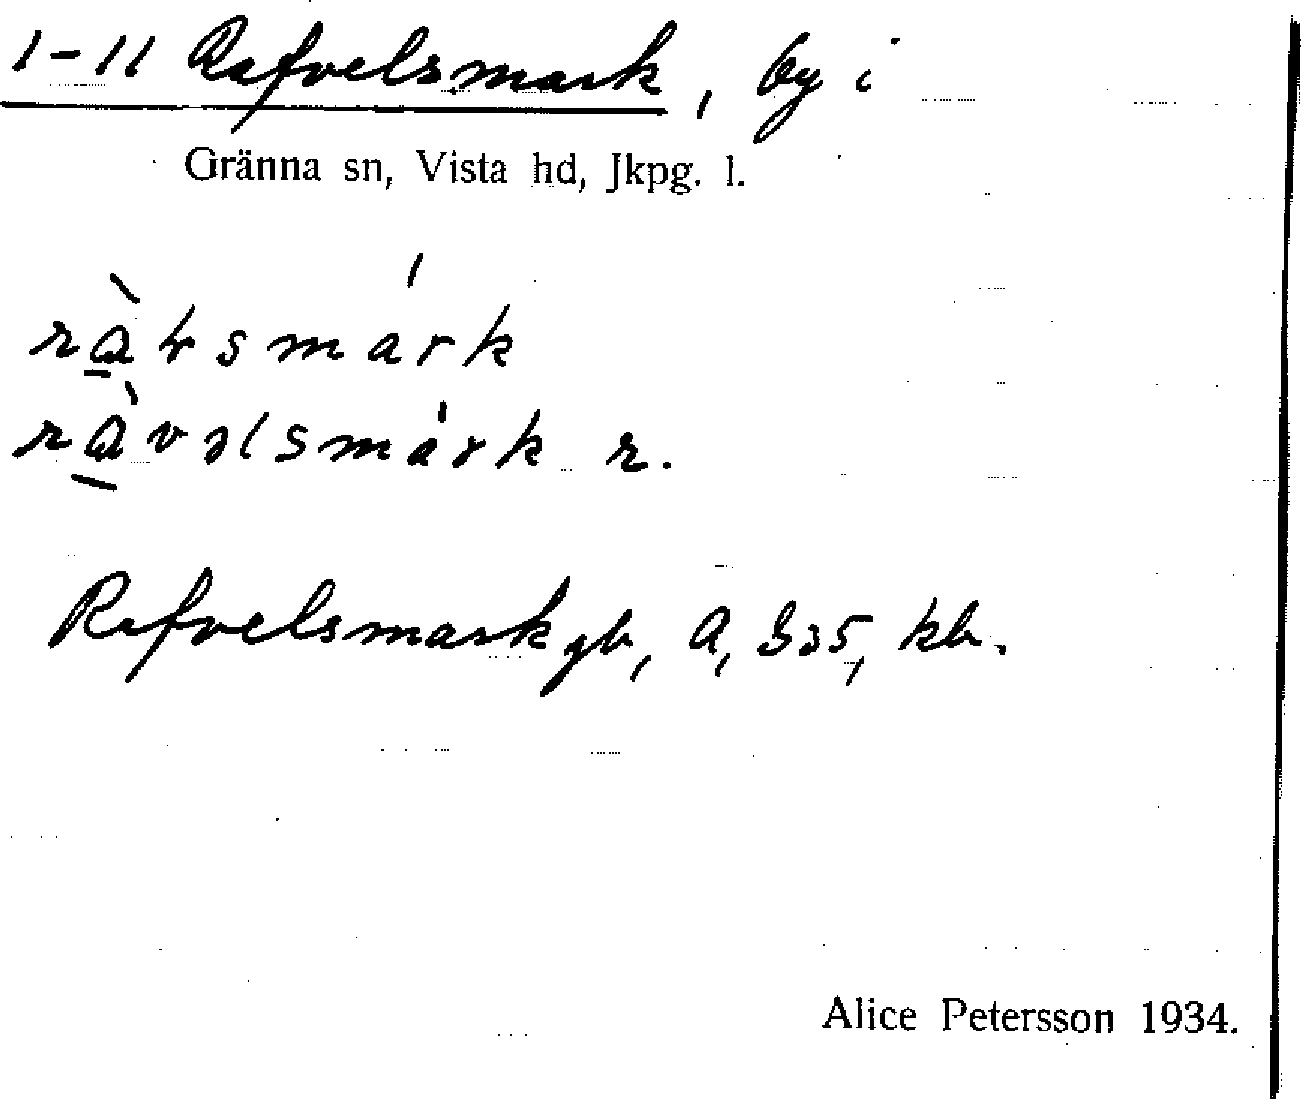 1-11 Rafvelsmark, by i
Gränna sn, Vista hd, Jkpg. l.
smark
ràvəlsmárk r.
Rafvelsmark gb, A, kb.
Alice Petersson 1934.